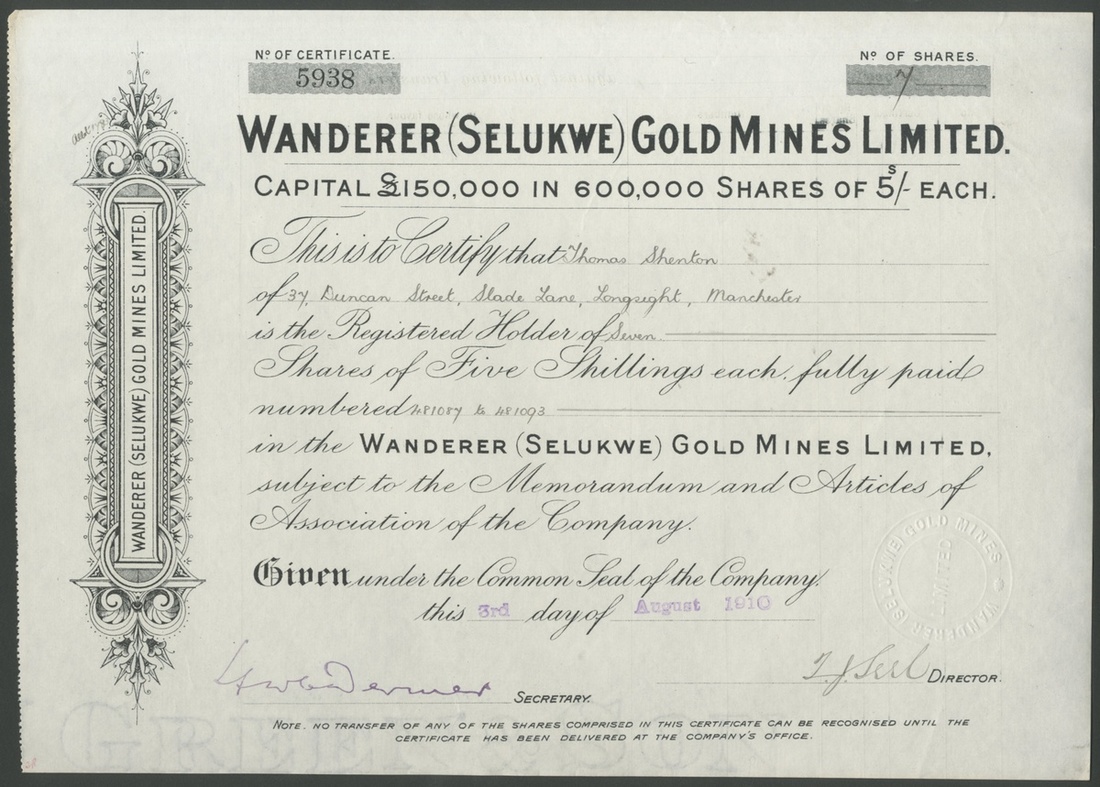 Nº OF CERTIFICATE.
5938
Nº OF SHARES.
7
WANDERER (SELUKWE) GOLD MINES LIMITED.
CAPITAL £150,000 IN 600,000 SHARES OF 5s/- EACH.
This is to Certify that Thomas Shenton
of 37, Duncan Street, Slade Lane, Longsight, Manchester
is the Registered Holder of Seven
Shares of Five Shillings each, fully paid
numbered 481087 to 481093
in the WANDERER (SELUKWE) GOLD MINES LIMITED,
subject to the Memorandum and Articles of
Association of the Company.
Given under the Common Seal of the Company,
this 3rd day of August 1910
DIRECTOR.
SECRETARY.
NOTE. NO TRANSFER OF ANY OF THE SHARES COMPRISED IN THIS CERTIFICATE CAN BE RECOGNISED UNTIL THE
CERTIFICATE HAS BEEN DELIVERED AT THE COMPANY'S OFFICE.
WANDERER (SELUKWE) GOLD MINES LIMITED.
WANDERER (SELUKWE) GOLD MINES
LIMITED